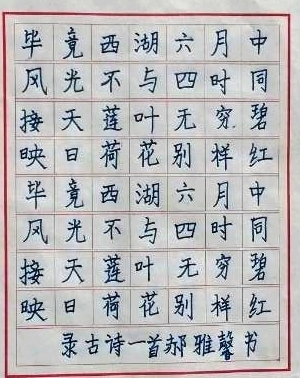 毕竟西湖六月中
风光不与四时同
接天莲叶无穷碧
映日荷花别样红
毕竟西湖六月中
风光不与四时同
接天莲叶无穷碧
映日荷花别样红
录古诗一首郝雅馨书